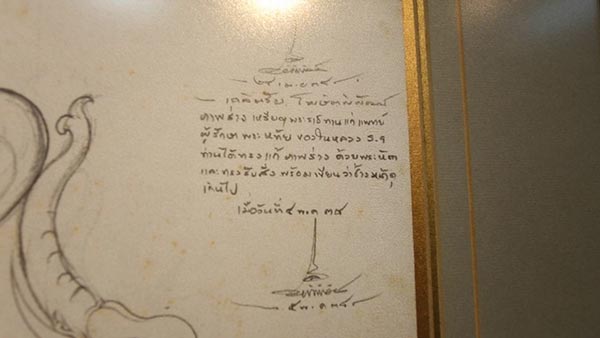 เฉลิมชัย. โฆษิตพิพัฒน์
ภาพร่าง เหรียญพระราชทานแก่แพทย์
ผู้รักษา พระหทัย ของในหลวง ร.๙
ท่านได้ทรงแก้ ภาพร่าง ด้วยพระหัตถ์
และทรงรับสั่ง พร้อมเขียนว่าช้างหน้าดุ
เกินไป
เมื่อวันที่ ๔ พ.ค ๓๘
๕ พ.ค ๓๘